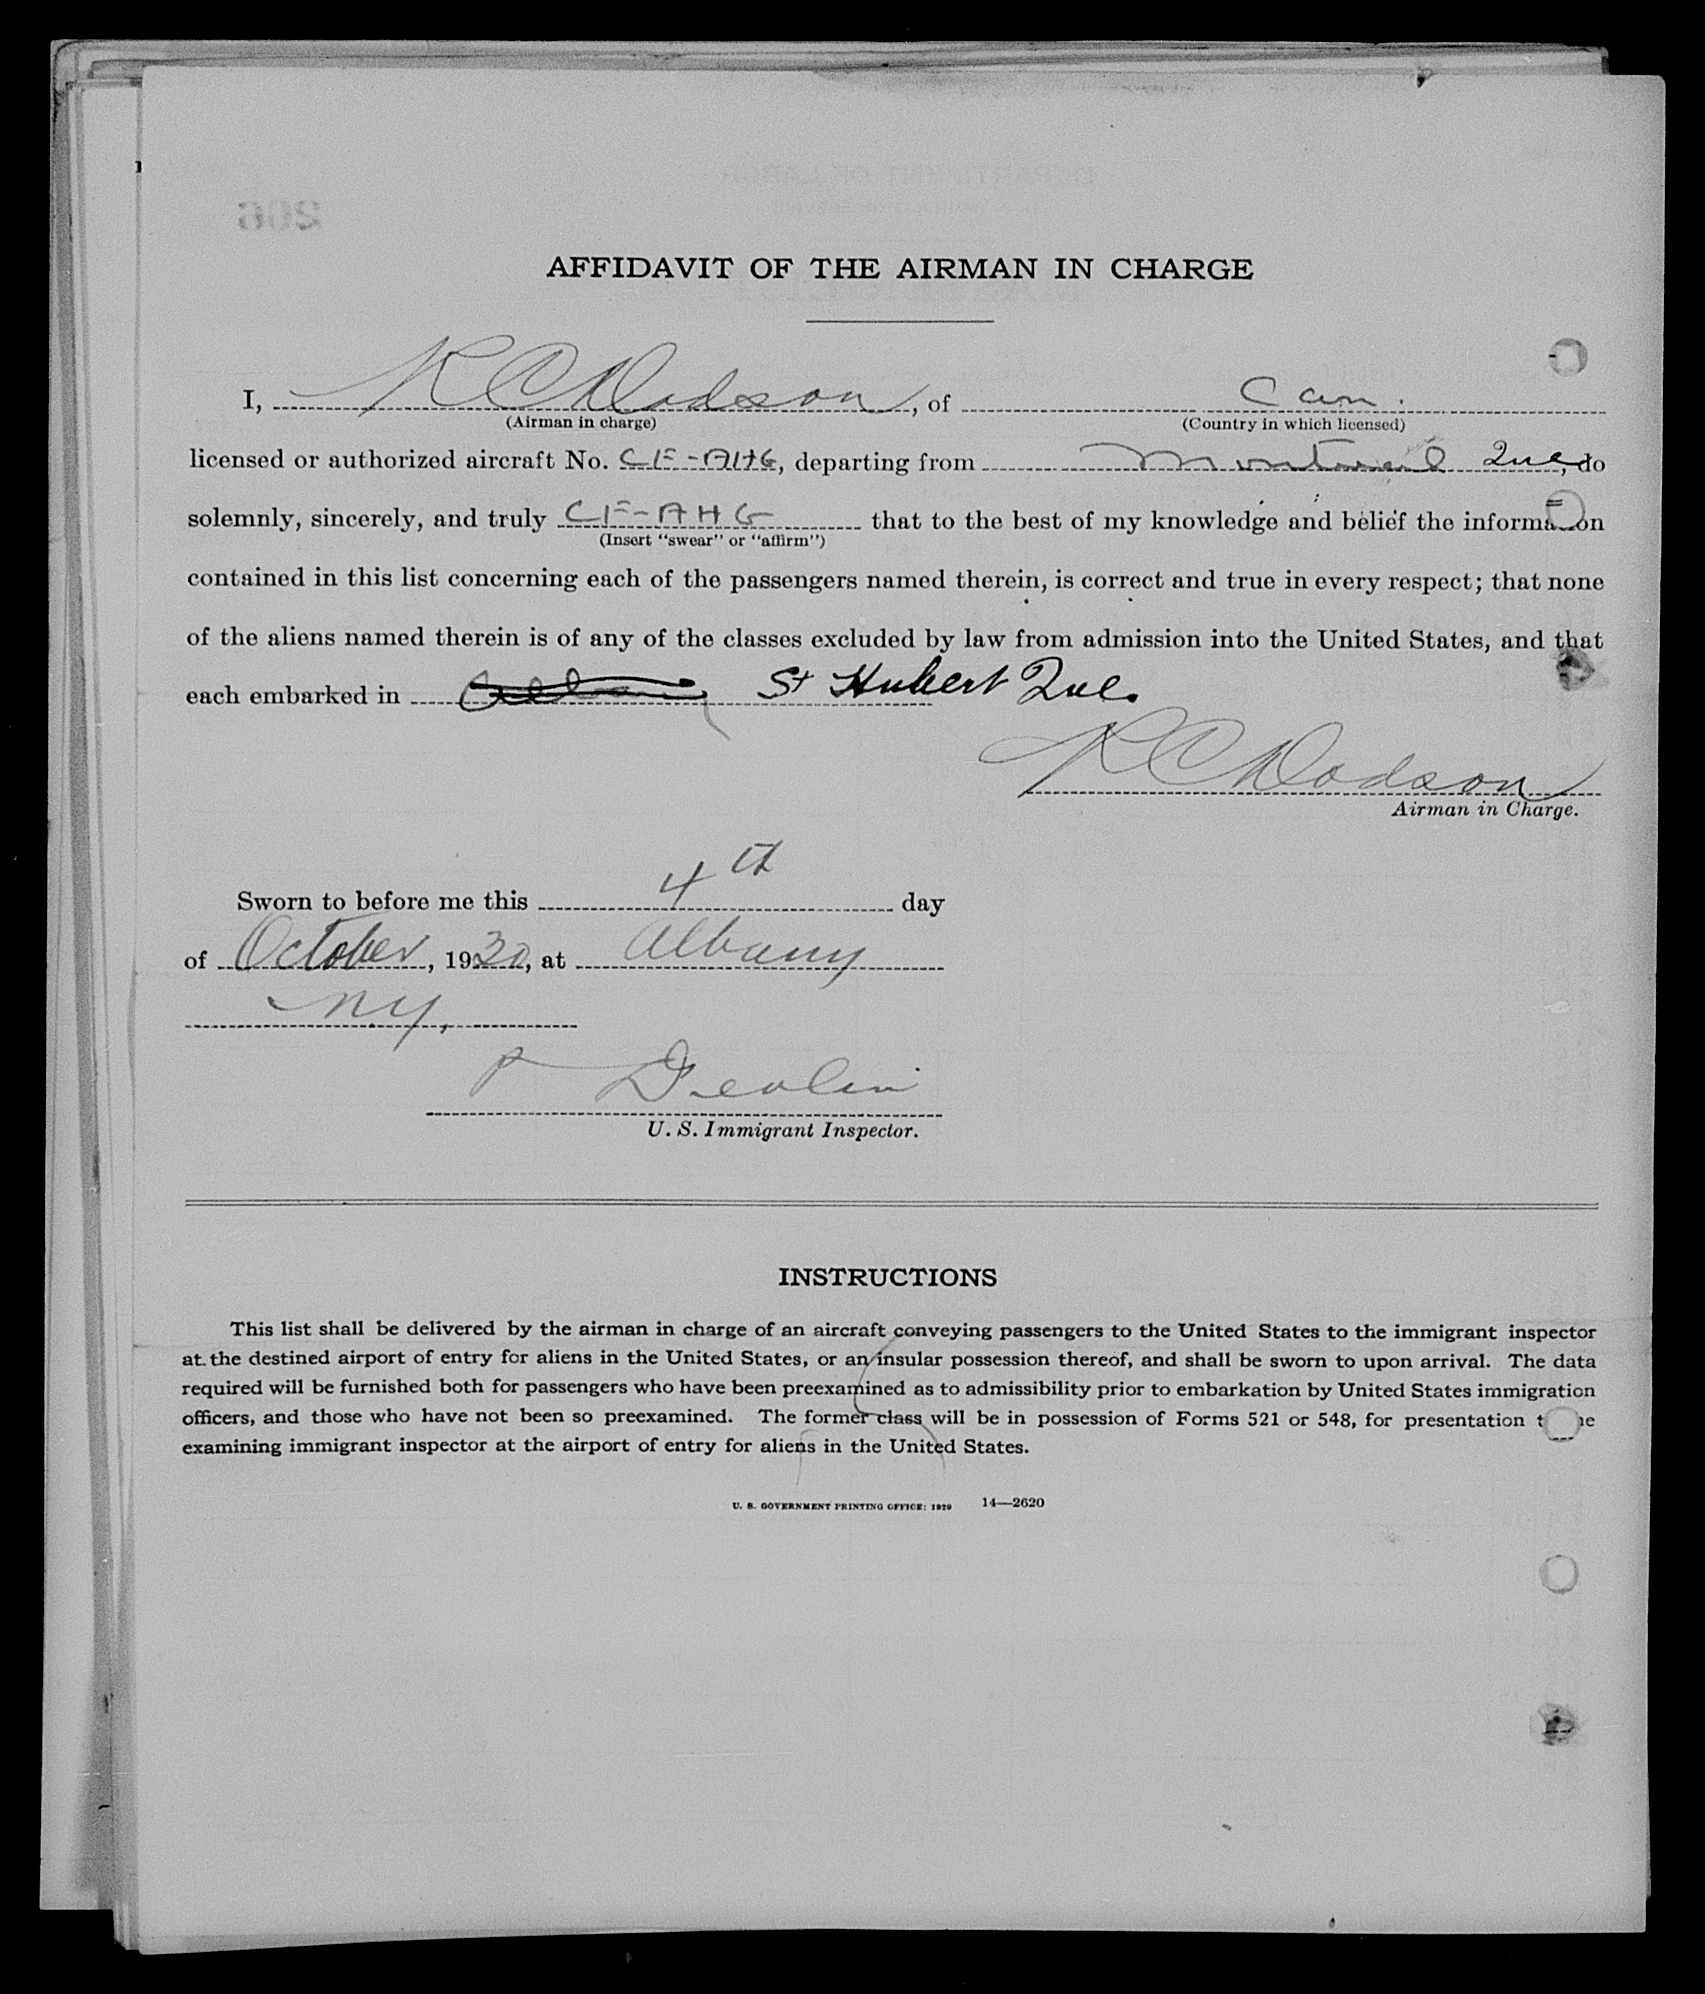 AFFIDAVIT OF THE AIRMAN IN CHARGE
I, R C Dodson, of Can.
(Airman in charge) (Country in which licensed)
licensed or authorized aircraft No. CF-AHG, departing from Montreal Que, do
solemnly, sincerely, and truly CF-AHG that to the best of my knowledge and belief the information
(Insert "swear" or "affirm")
contained in this list concerning each of the passengers named therein, is correct and true in every respect; that none
of the aliens named therein is of any of the classes excluded by law from admission into the United States, and that
each embarked in Albany St Hubert Que.
R C Dodson
Airman in Charge.
Sworn to before me this 4th day
of October, 1930, at Albany
NY,
P Devlin
U. S. Immigrant Inspector.
INSTRUCTIONS
This list shall be delivered by the airman in charge of an aircraft conveying passengers to the United States to the immigrant inspector
at the destined airport of entry for aliens in the United States, or an insular possession thereof, and shall be sworn to upon arrival. The data
required will be furnished both for passengers who have been preexamined as to admissibility prior to embarkation by United States immigration
officers, and those who have not been so preexamined. The former class will be in possession of Forms 521 or 548, for presentation to the
examining immigrant inspector at the airport of entry for aliens in the United States.
U. S. GOVERNMENT PRINTING OFFICE: 1929 14—2620